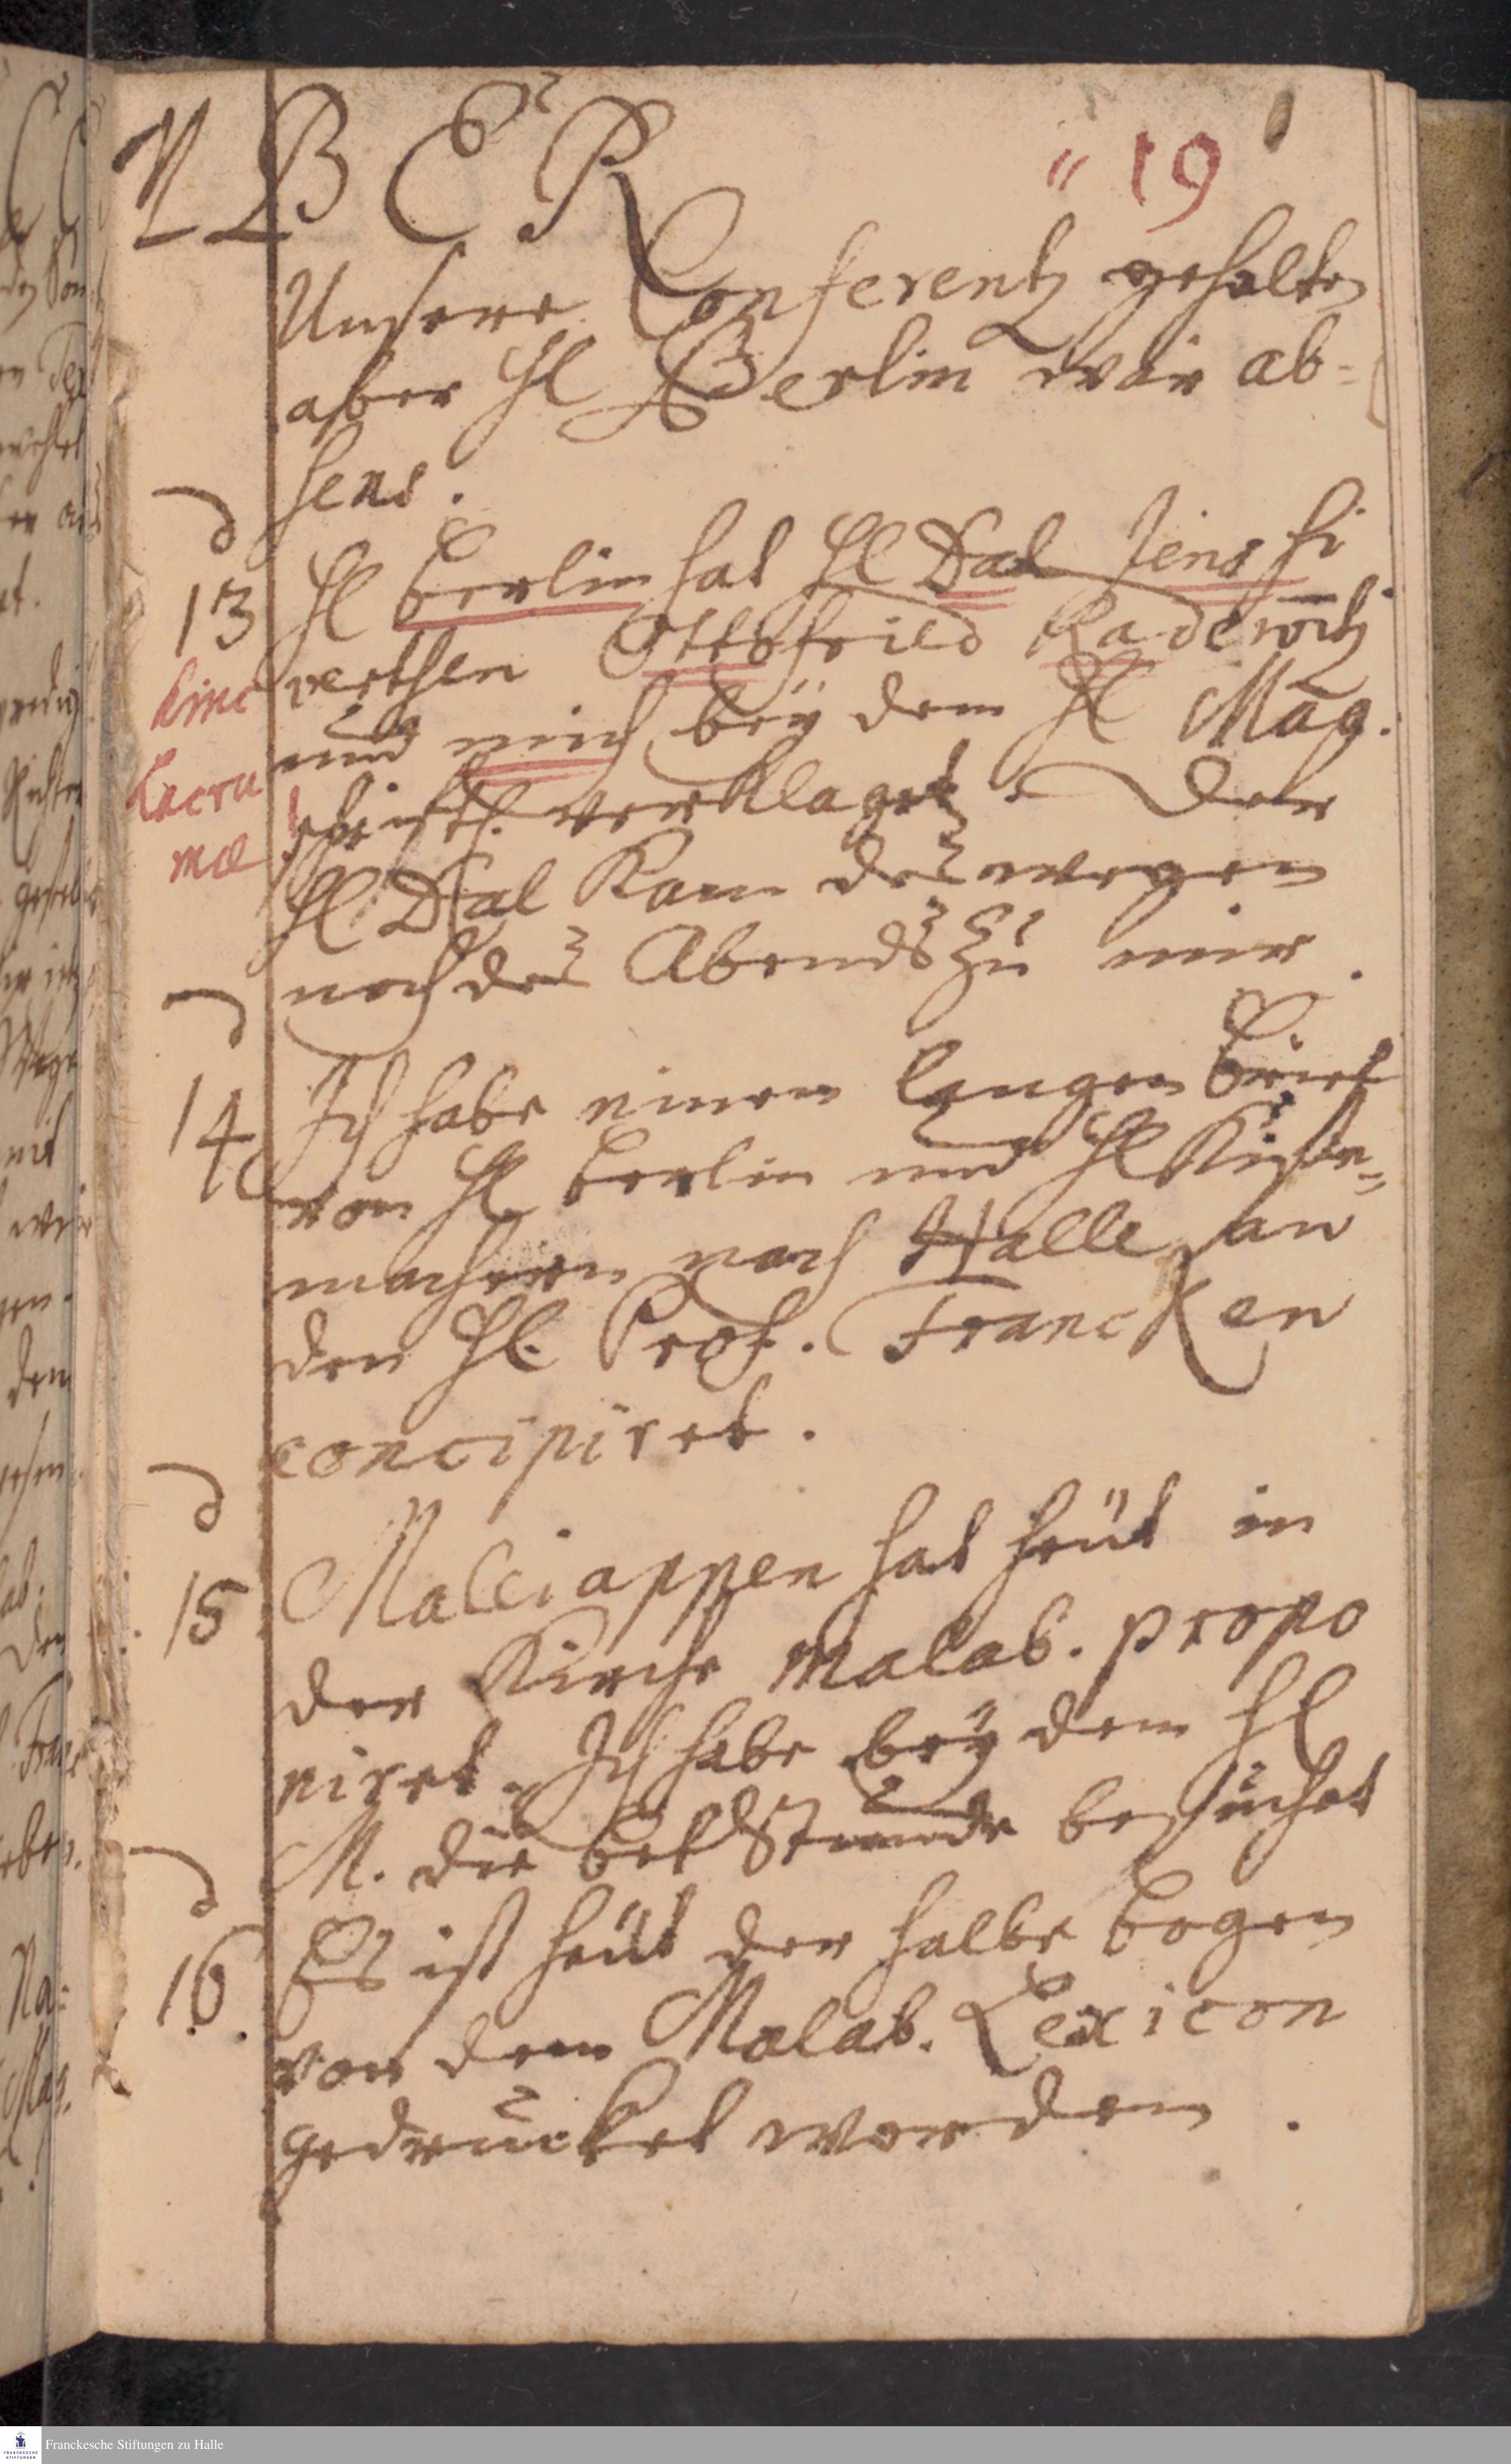 MBER
" 19
Unsere Conferentz gehalten
aber H Berlin war ab-
sens.
13 H Berlin hat H Dal Jens Si
verthen Ottofried Raderoth
und mich bey dem H Mag.
schriftl. verklaget. Der
hinc
Lacru
mæ!
H Dal kam deswegen
noch des Abends zu mir.
14 Ich habe einen langen brief
von H Berlin und H Kisten-
machern nach Halle an
den H. Prof. Francken
concipiret.
15 Maleiappen hat heut in
der Kirche malab. propo
niret. Ich habe bey dem H
M. die betstunde besuchet
16 Es ist heut der halbe bogen
von dem Malab. Lexicon
gedrucket worden.
Franckesche Stiftungen zu Halle